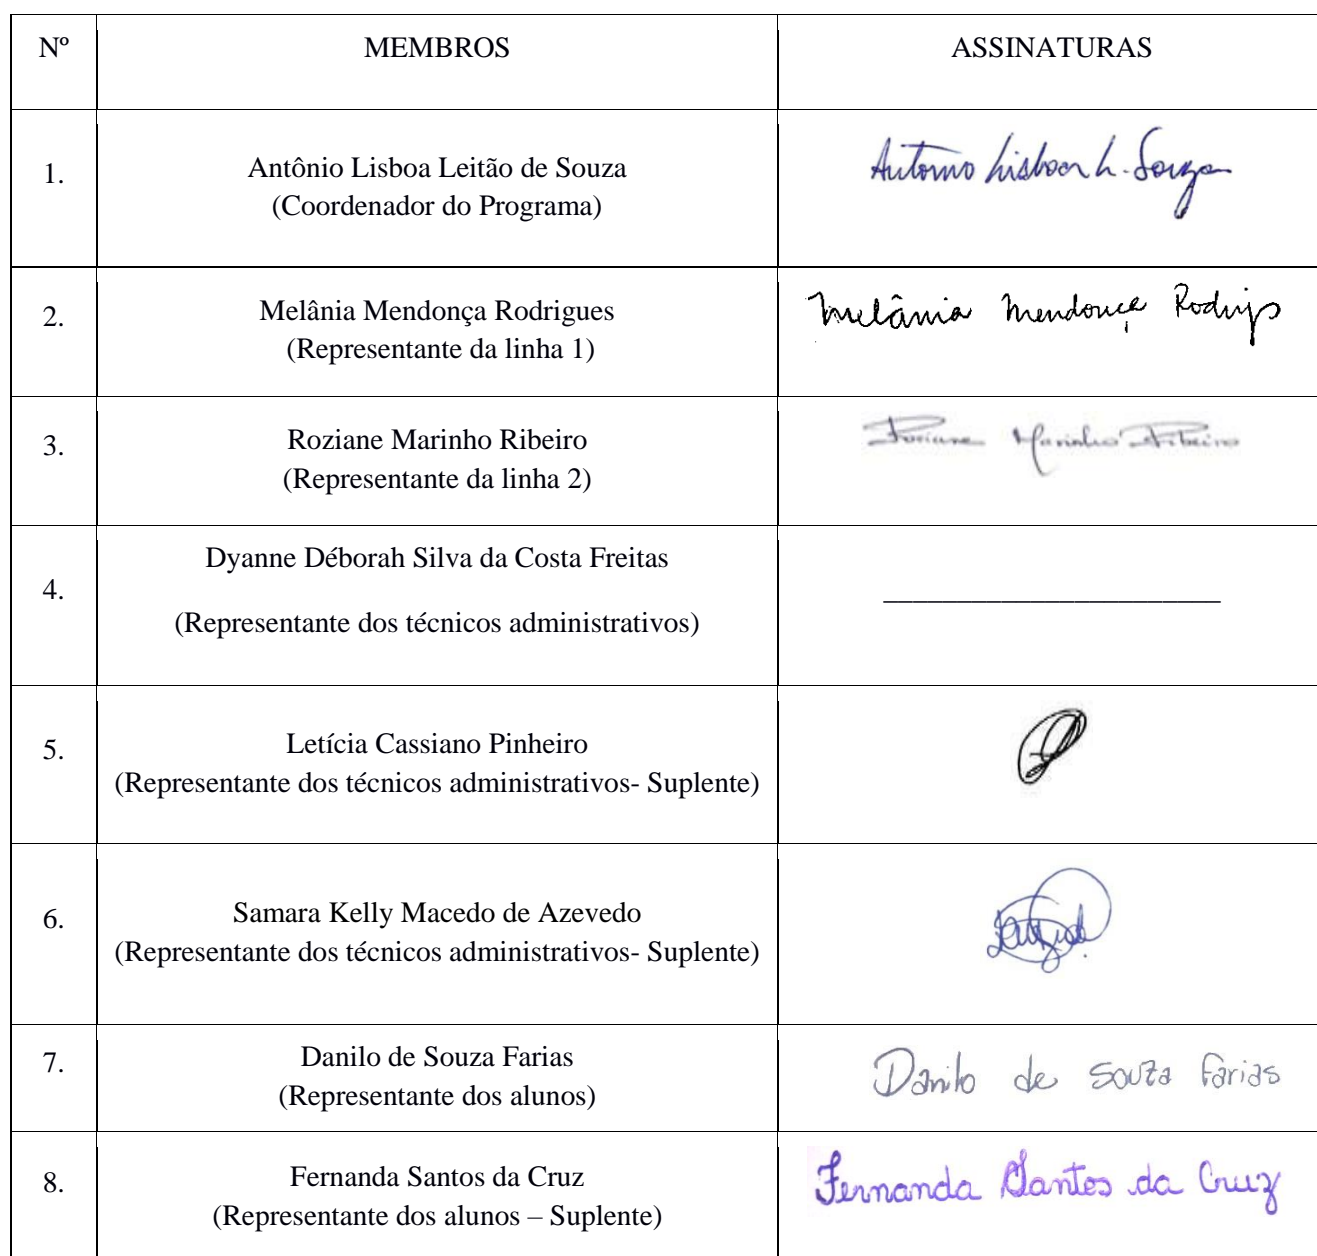 Nº MEMBROS ASSINATURAS
1. Antônio Lisboa Leitão de Souza
(Coordenador do Programa)
Antonio Lisboa L. Souza
2. Melânia Mendonça Rodrigues
(Representante da linha 1)
Melânia Mendonça Rodrigs
3. Roziane Marinho Ribeiro
(Representante da linha 2)
Roziane Marinho Ribeiro
4. Dyanne Déborah Silva da Costa Freitas
(Representante dos técnicos administrativos)
5. Letícia Cassiano Pinheiro
(Representante dos técnicos administrativos- Suplente)
6. Samara Kelly Macedo de Azevedo
(Representante dos técnicos administrativos- Suplente)
7. Danilo de Souza Farias
(Representante dos alunos)
Danilo de Souza Farias
8. Fernanda Santos da Cruz
(Representante dos alunos – Suplente)
Fernanda Santos da Cruz